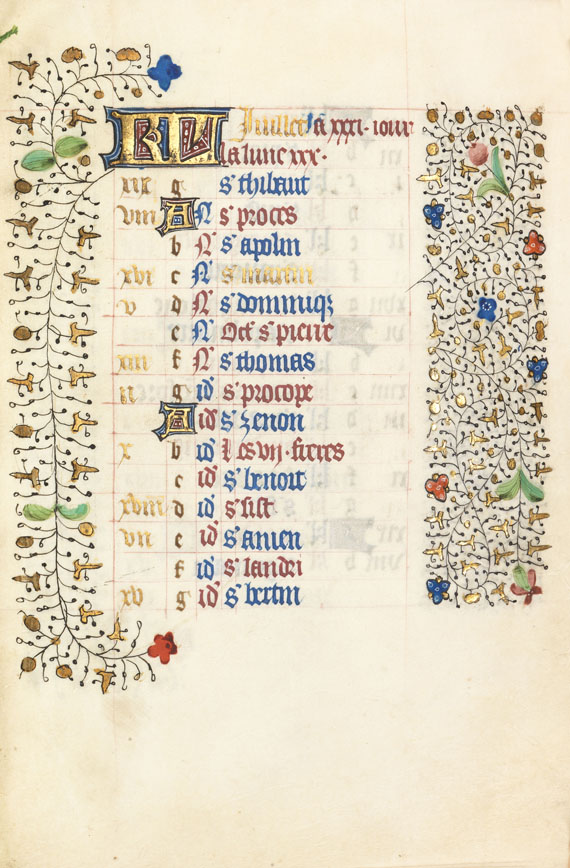 KL Juillet a xxxi. iour
la lune xxx.
xix g s' thibaut
viii A N s' proces
b N s' apolin
xvi c N s' martin
v d N s' dominiq3
e N Oct s' pierre
xiii f N s' thomas
ii g id s' procope
A id s' zenon
x b id Les vii. freres
c id s' benoit
xviii d id s' sist
vii e id s' anien
f id s' landri
xv g id s' bertin